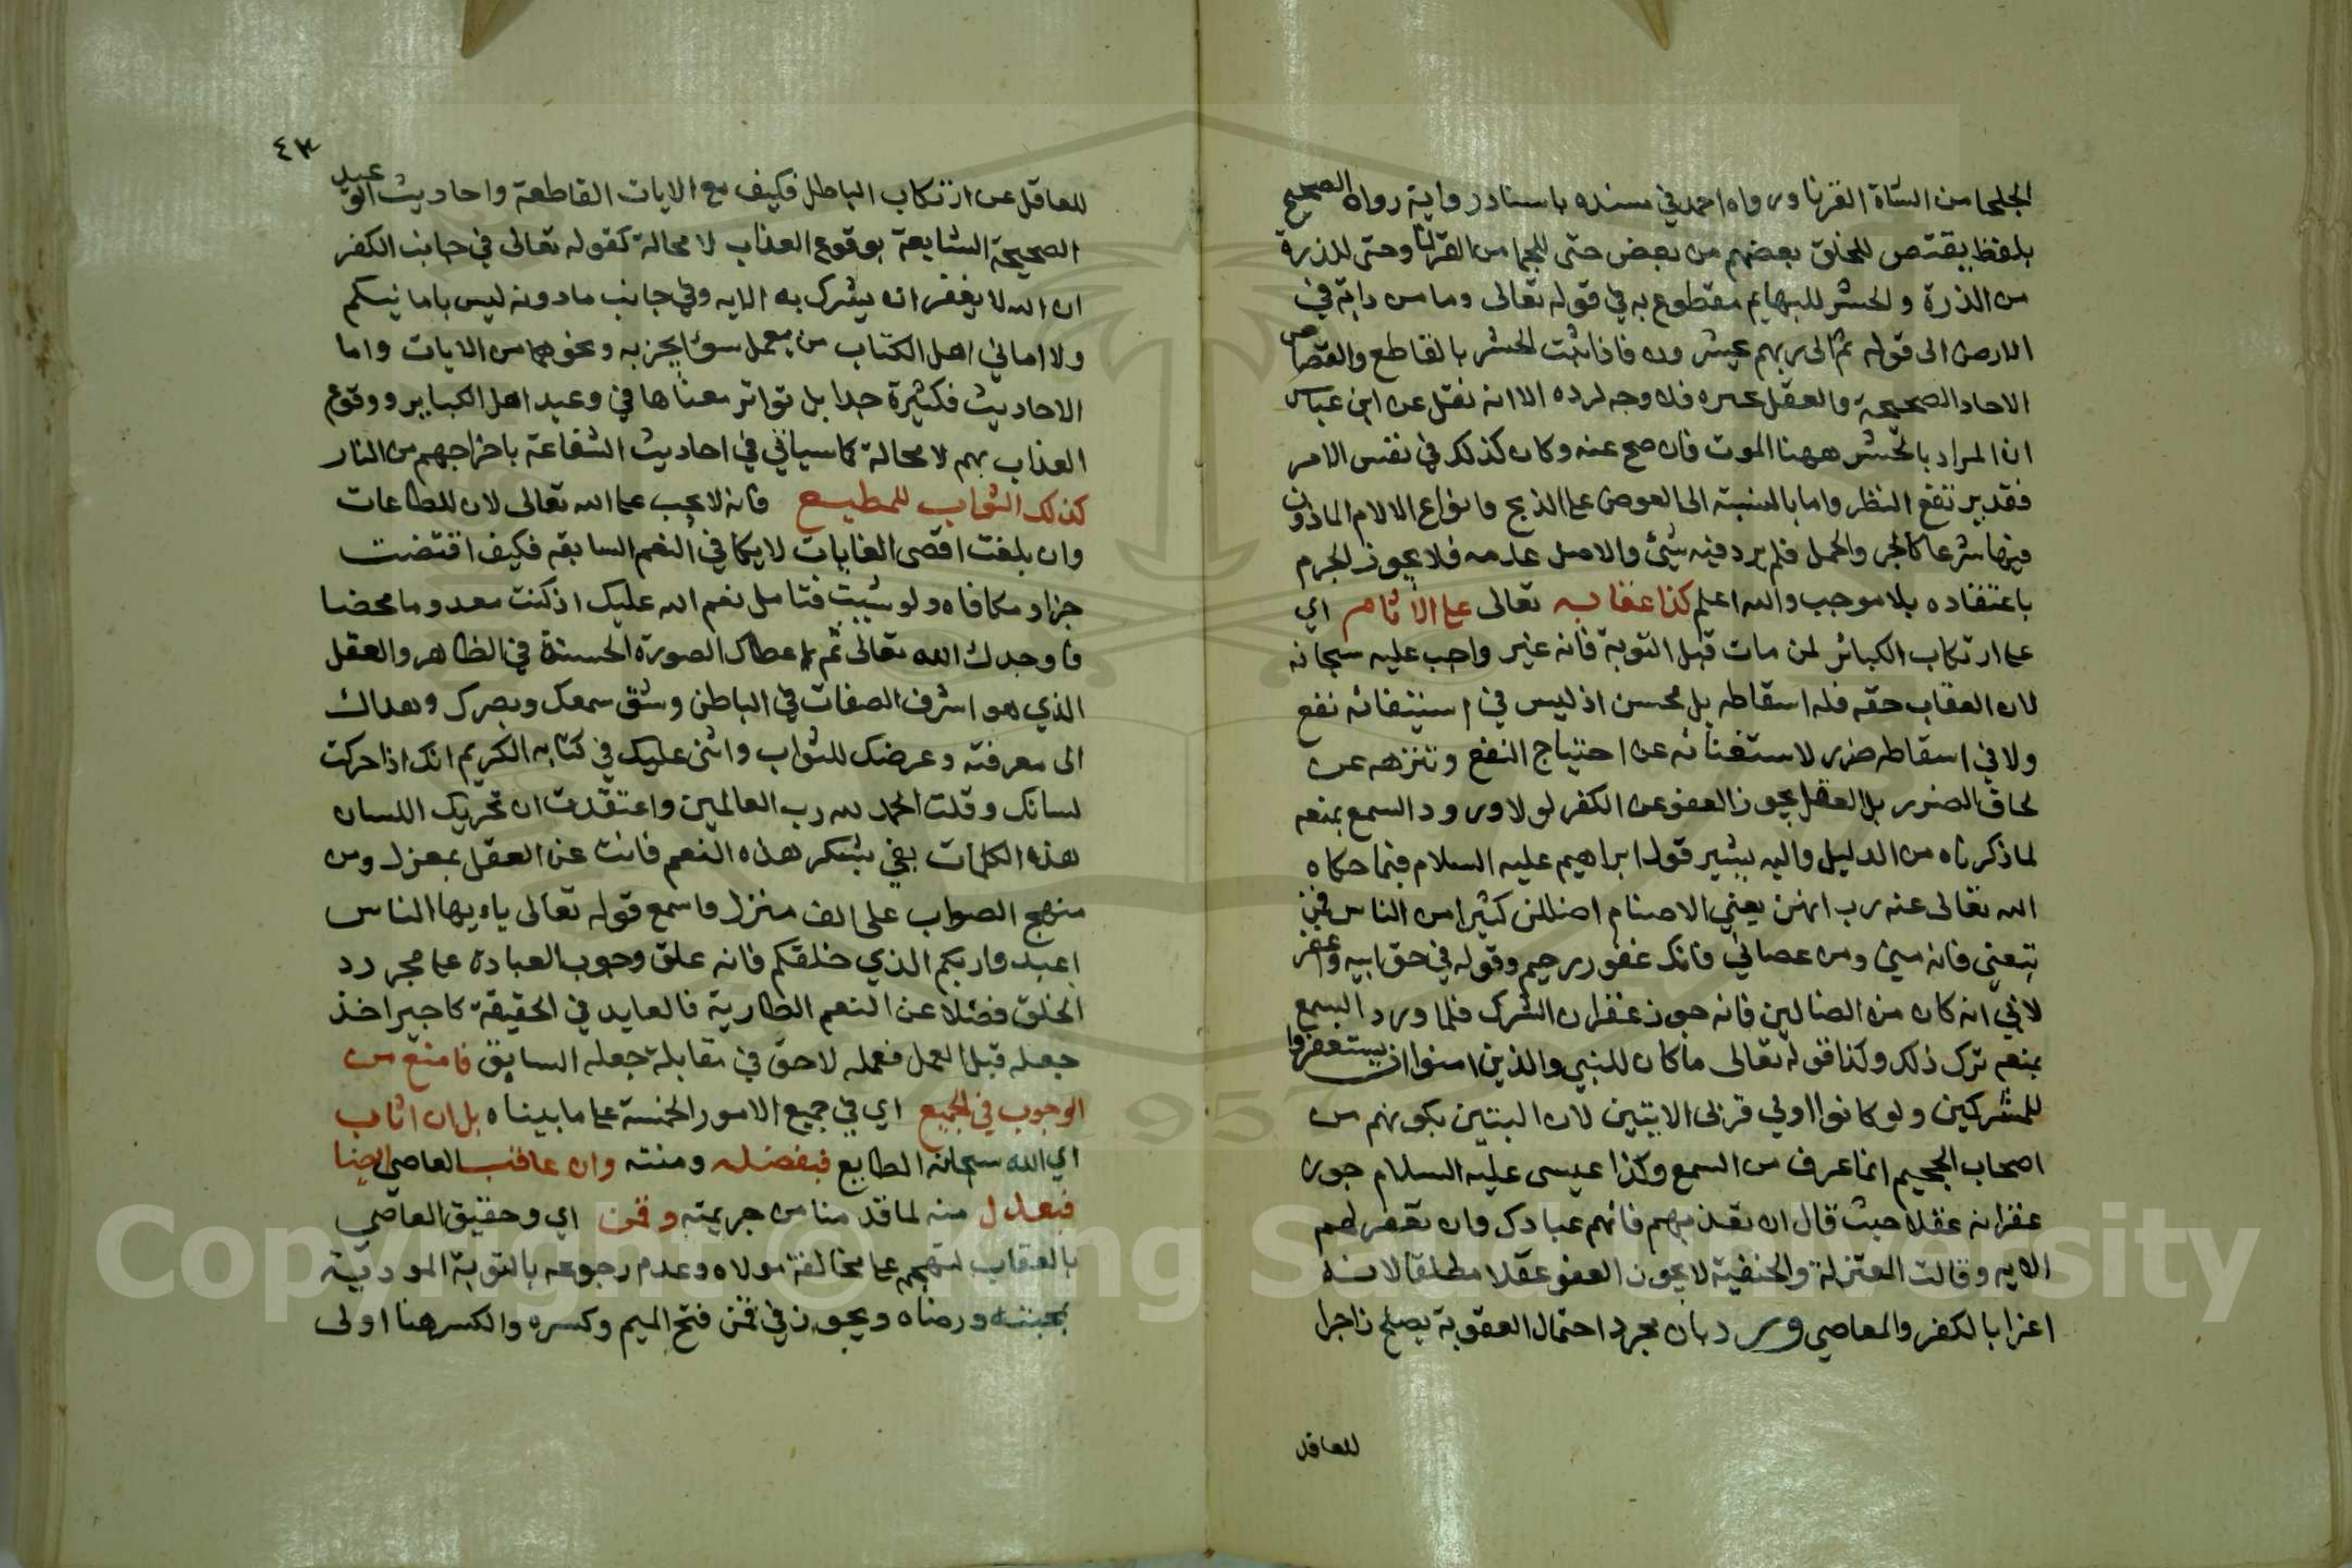 الجلحا من الشاة القرنا ورواه احمد في مسنده باسناد رواية رواه الصحيح
بلفظ يقتص للخلق بعضهم من بعض حتى للجما من القرنا وحتى للذرة
من الذرة والحشر للبهايم مقطوع به في قوله تعالى وما من دابة في
الارض الى قوله ثم الى ربهم يحشرون فاذا ثبت الحشر بالقاطع والقصاص
الاحاد الصحيحة والعقل فلا وجه لرده الا انه نقل عن ابن عباس
ان المراد بالحشر ههنا الموت فان صح عنه وكان كذلك في نفس الامر
فقد يرتفع النظر واما بالنسبة الى العوض على الذبح وانواع الالام الماذون
فيها شرعا كالجر والحمل فلم يرد فيه شئ والاصل عدمه فلا يجوز الجرم
باعتقاده بلا موجب والله اعلم كذا عقابه تعالى على الاثام اي
على ارتكاب الكبائر لمن مات قبل التوبة فانه غير واجب عليه سبحانه
لان العقاب حقه فله اسقاطه بل محسن اذ ليس في استيفائه نفع
ولا في اسقاطه ضرر لاستغنائه عن احتياج النفع وتنزهه عن
لحاق الضرر بل العقل يجوز العفو عن الكفر لولا ورود السمع بمنعه
لما ذكرناه من الدليل واليه يشير قول ابراهيم عليه السلام فيما حكاه
الله تعالى عنه رب انهن يعني الاصنام اضللن كثيرا من الناس فمن
تبعني فانه مني ومن عصاني فانك غفور رحيم وقوله في حق ابيه واغفر
لابي انه كان من الضالين فانه جوز غفران الشرك فلما ورد السمع
بمنعه ترك ذلك وكذا قوله تعالى ما كان للنبي والذين امنوا ان يستغفروا
للمشركين ولو كانوا اولي قربى الايتين لان البنتين بكونهم من
اصحاب الجحيم انما عرف من السمع وكذا عيسى عليه السلام جوز
غفرانه عقلا حيث قال ان تعذبهم فانهم عبادك وان تغفر لهم
الايه وقالت المعتزلة والحنفية لا يجوز العفو عقلا مطلقا لانه
اغرا بالكفر والمعاصي ورد بان مجرد احتمال العقوبة يصلح زاجرا
للعاقل
٤٣
للعاقل عن ارتكاب الباطل فكيف مع الايات القاطعة واحاديث الوعيد
الصحيحة الشايعة بوقوع العذاب لا محالة كقوله تعالى في جانب الكفر
ان الله لا يغفر ان يشرك به الايه وفي جانب ما دونه ليس بامانيكم
ولا اماني اهل الكتاب من يعمل سوئا يجز به ونحوهما من الايات واما
الاحاديث فكثيرة جدا بل تواتر معناها في وعيد اهل الكباير ووقوع
العذاب بهم لا محالة كما سياتي في احاديث الشفاعة باخراجهم من النار
كذلك الثواب للمطيع فانه لا يجب على الله تعالى لان للطاعات
وان بلغت اقصى الغايات لا يكافي النعم السابقه فكيف اقتضت
جزا ومكافاه ولو شيت فتامل نعم الله عليك اذ كنت معدوما محضا
فاوجدك الله تعالى ثم اعطاك الصورة الحسنة في الظاهر والعقل
الذي هو اشرف الصفات في الباطن وشق سمعك وبصرك وهداك
الى معرفته وعرضك للثواب واثنى عليك في كتابه الكريم انك اذا حركت
لسانك وقلت الحمد لله رب العالمين واعتقدت ان تحريك اللسان
هذه الكلمات يفي بشكر هذه النعم فانت عن العقل بمعزل ومن
منهج الصواب على الف منزل واسمع قوله تعالى ياايها الناس
اعبدوا ربكم الذي خلقكم فانه علق وجوب العبادة على مجرد
الخلق فضلا عن النعم الطارية فالعابد في الحقيقة كاجير اخذ
جعله قبل العمل فعمله لاحق في مقابلة جعله السابق فامنع من
الوجوب في الجميع اي في جميع الامور الخمسة على ما بيناه بل ان اثاب
اي الله سبحانه الطايع فبفضله ومنته وان عاقب العاصي ايضا
فبعدل منه لما قدمنا من جريمته وقمن اي وحقيق العاصي
بالعقاب على مخالفة مولاه وعدم رجوعه بالتوبة المودية
بمحبته ورضاه ويجوز في قمن فتح الميم وكسره والكسر هنا اولى
Copyright © King Saud University
1957